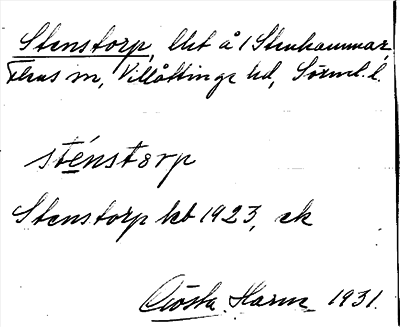 Stenstorp, lht å 1 Stenhammar,
Flens sn, Villåttinge hd, Sörml. l.
sténstorp
Stenstorp kb 1923, ek
Gösta Harm 1931.